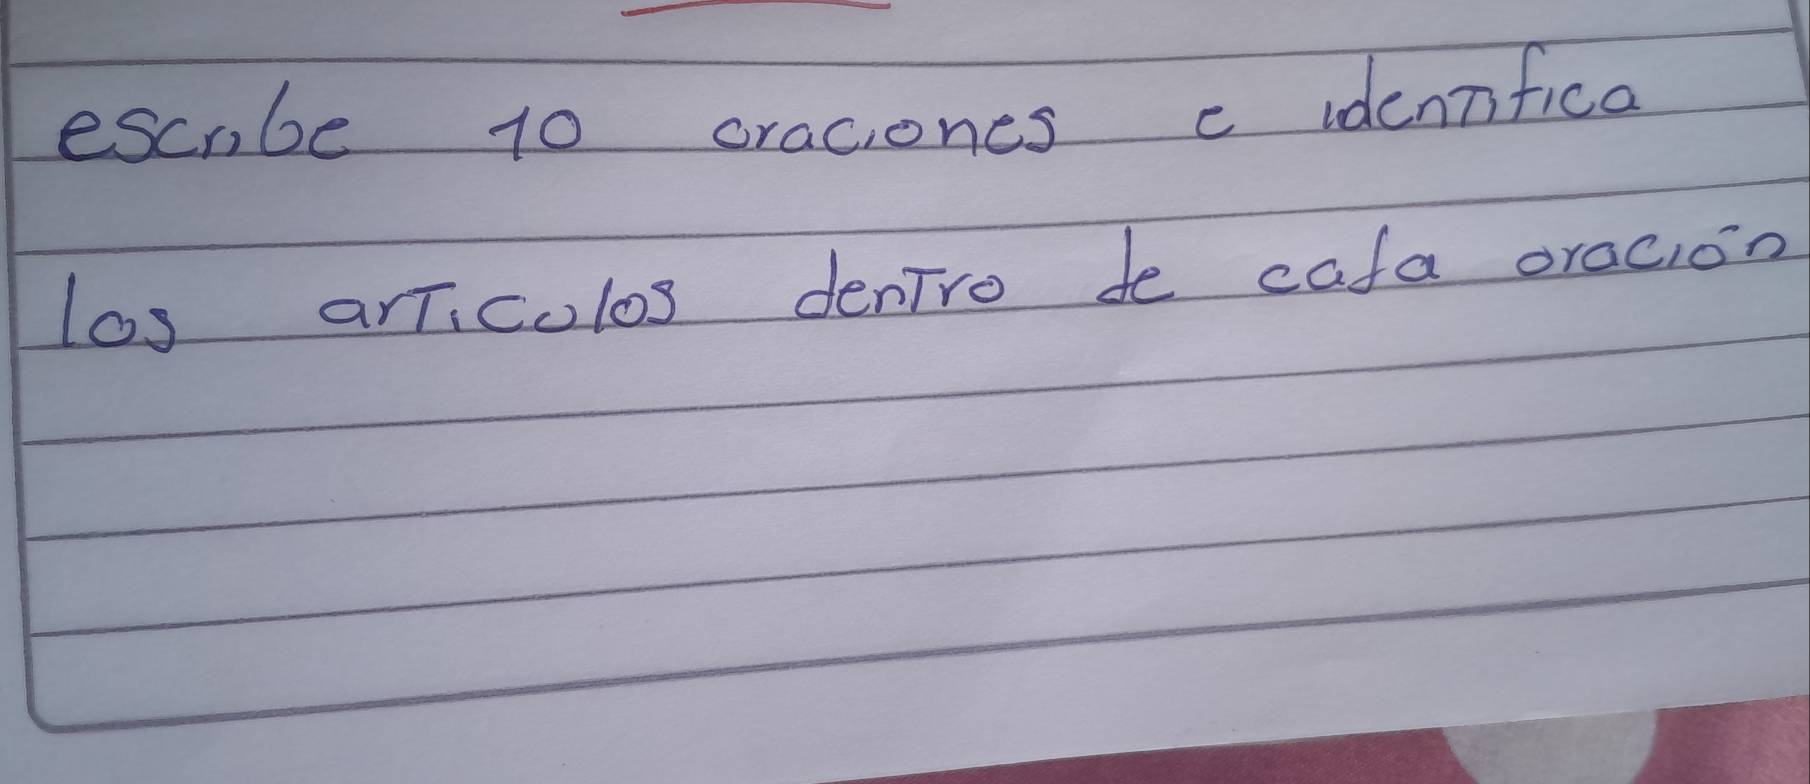 escribe 10 oraciones e identifica
los articulos dentro de cada oración